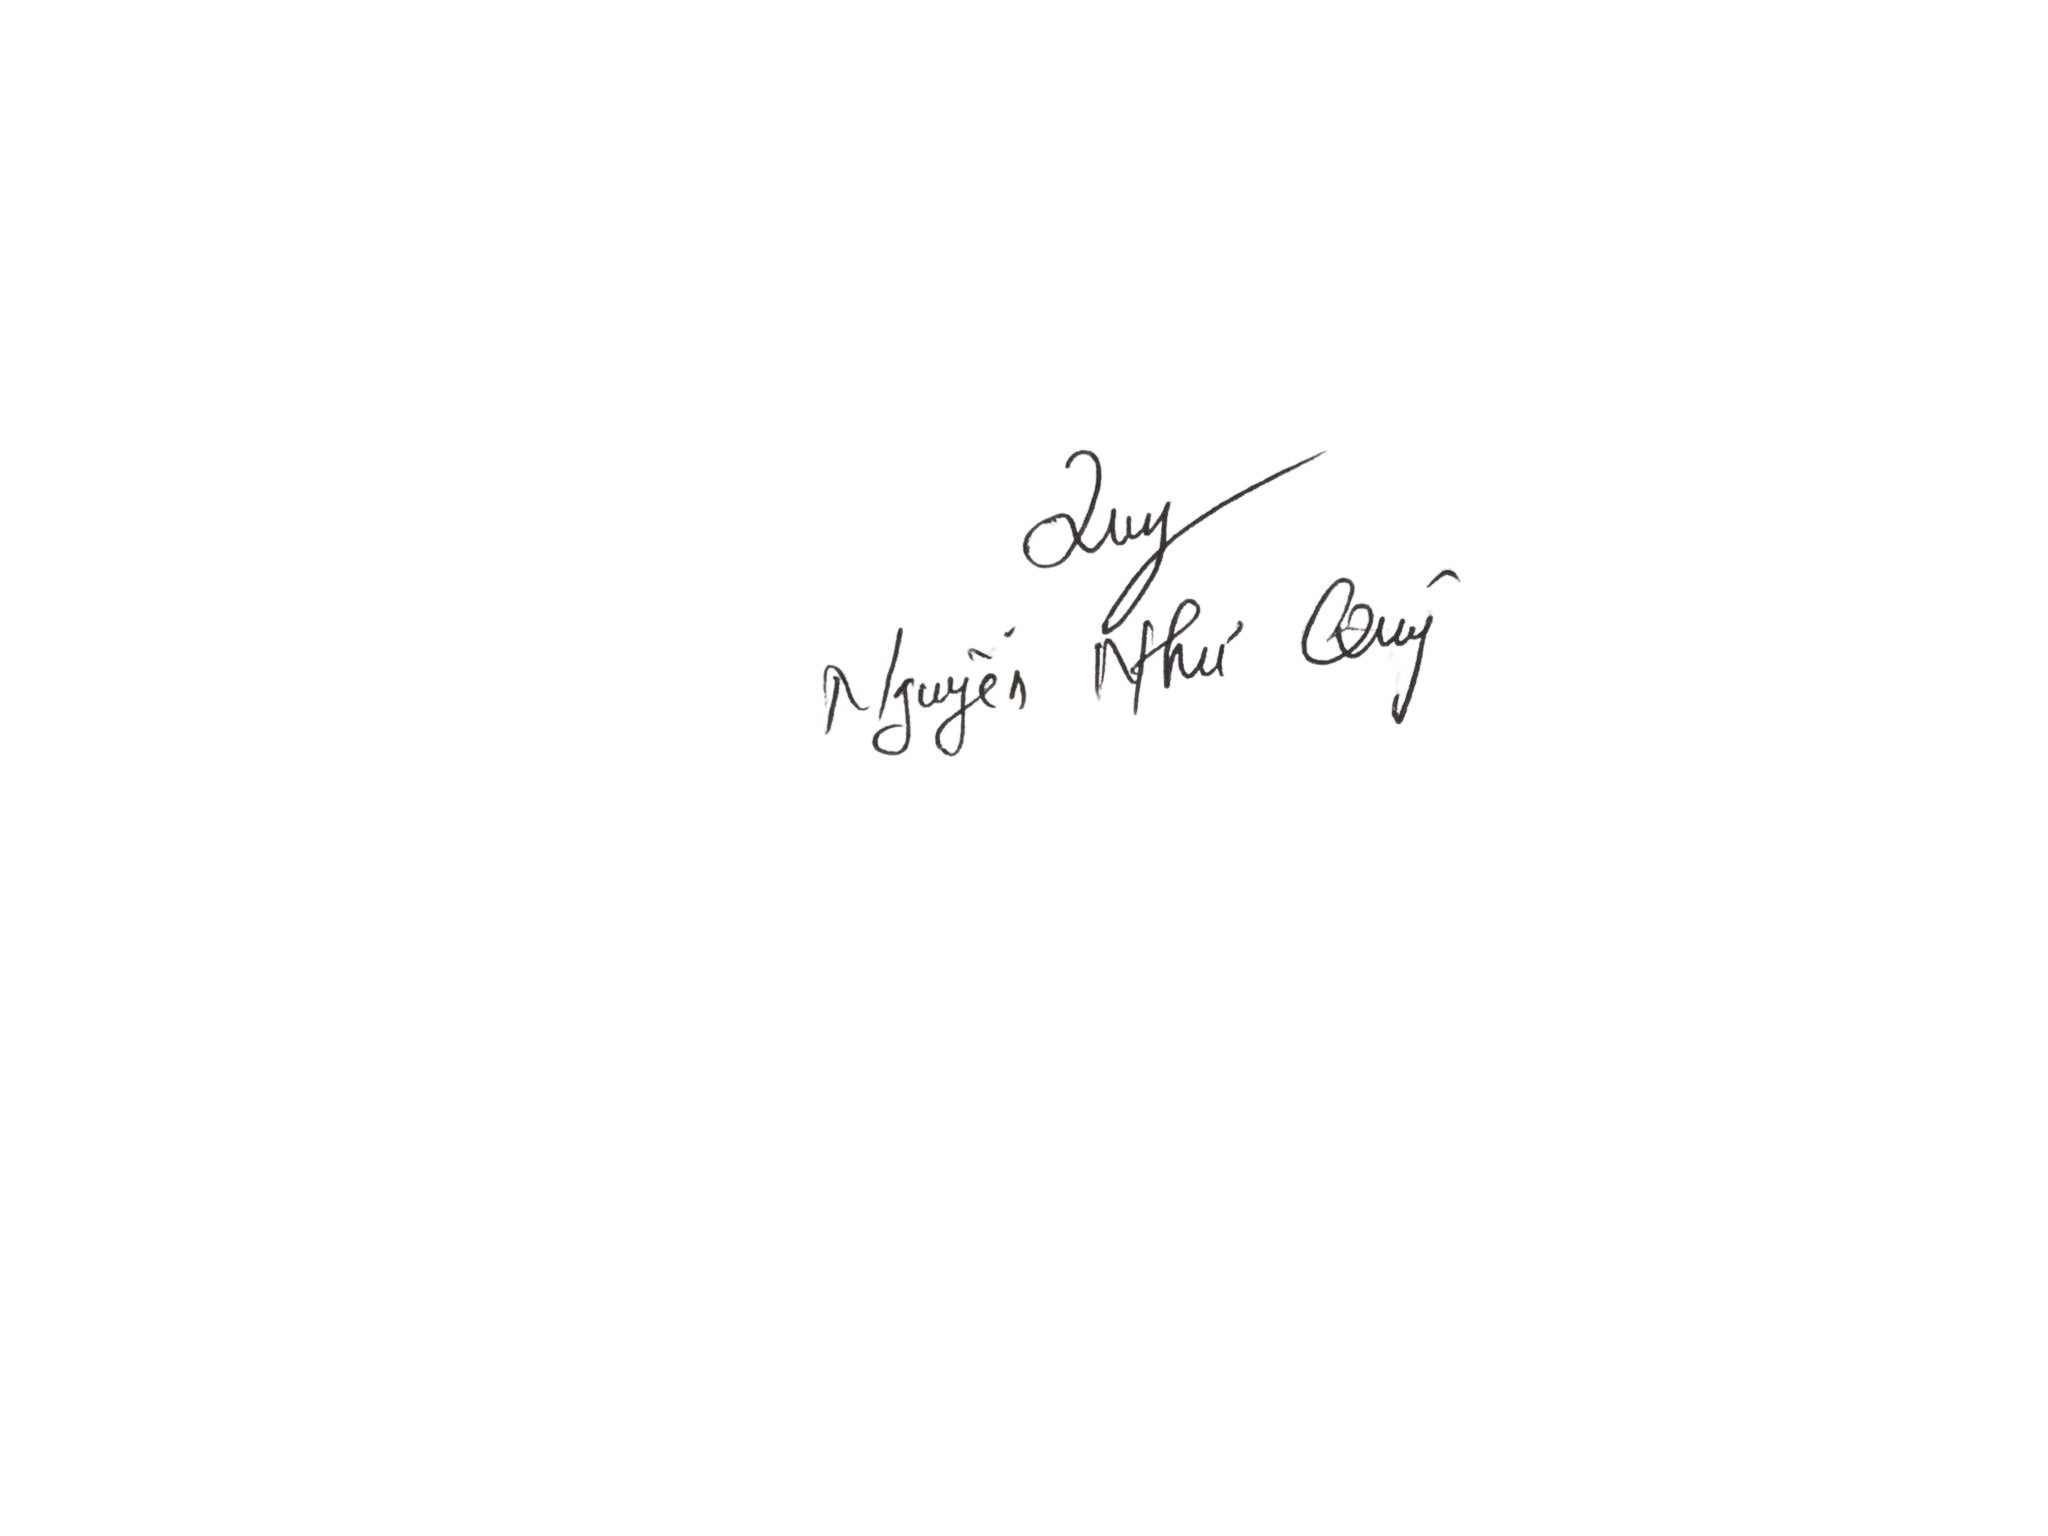 Quy
Nguyễn Như Quý